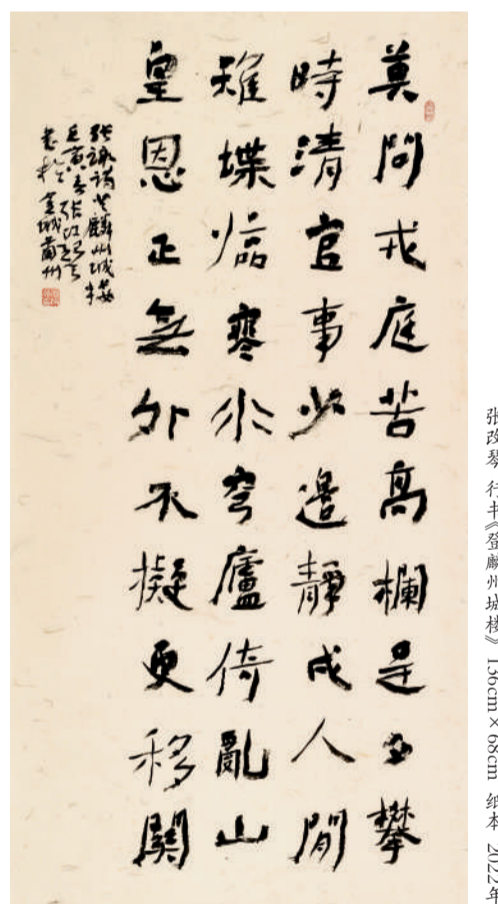 莫問戎庭苦高欄是可攀
時清官事少邊靜戍人閒
雉堞臨寒水穹廬倚亂山
皇恩正無外不擬更移關
張詠詩登麟州城樓
壬寅春張改琴
書於金城蘭州
张改琴 行书《登麟州城楼》 136cm×68cm 纸本 2022年